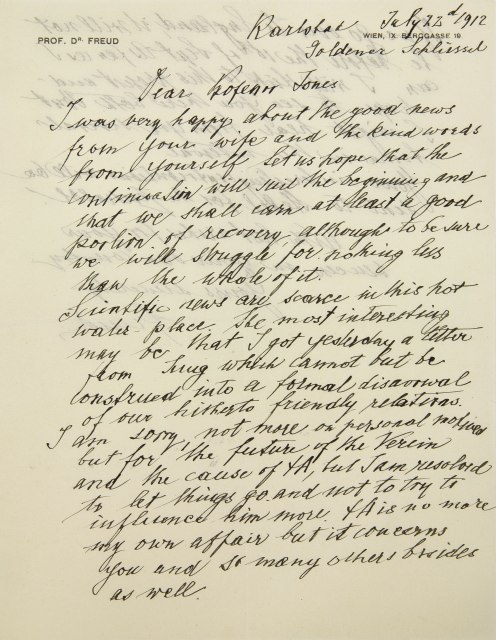 Karlsbad July 22d 1912
PROF. DR. FREUD
WIEN, IX. BERGGASSE 19.
Goldener Schlüssel
Dear Professor Jones
I was very happy about the good news
from your wife and the kind words
from yourself. Let us hope that the
continuation will suit the beginning and
that we shall earn at least a good
portion of recovery, although to be sure
we will struggle for nothing less
than the whole of it.
Scientific news are scarce in this hot
water place. The most interesting
may be, that I got yesterday a letter
from Jung which cannot but be
construed into a formal disavowal
of our hitherto friendly relations.
I am sorry, not more on personal motives
but for the future of the Verein
and the cause of ΨA, but I am resolved
to let things go and not to try to
influence him more. ΨA is no more
my own affair but it concerns
you and so many others besides
as well.